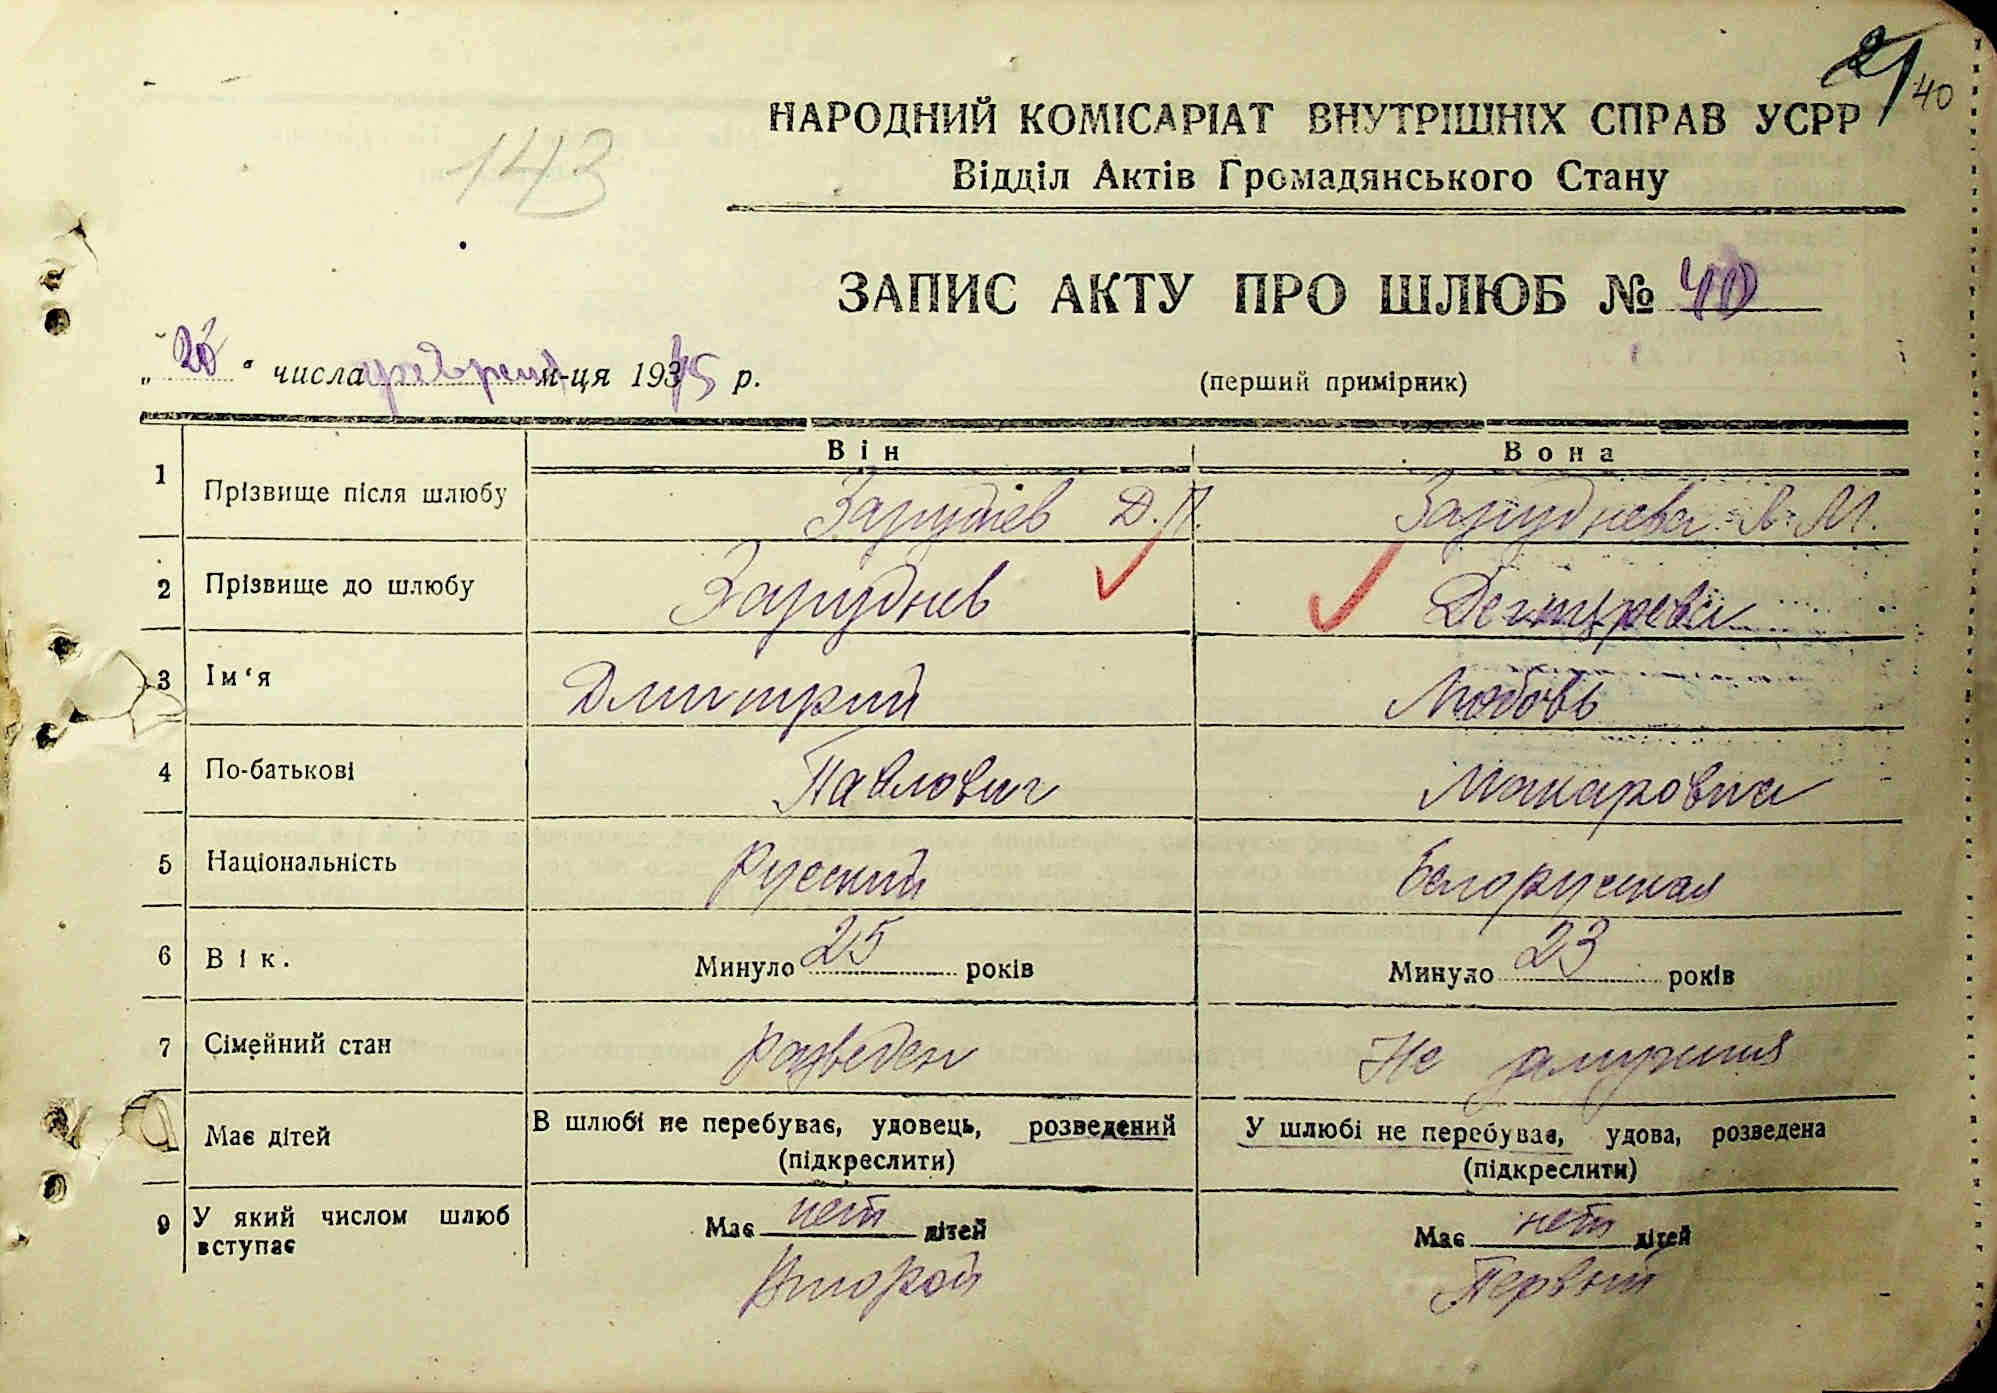 21
40
143
НАРОДНИЙ КОМІСАРІАТ ВНУТРІШНІХ СПРАВ УСРР
Відділ Актів Громадянського Стану
ЗАПИС АКТУ ПРО ШЛЮБ № 40
„ “ числа февраля м-ця 1935 р.
(перший примірник)
Він Вона
1 Прізвище після шлюбу Заруднев Д.П. Заруднева Л. М.
2 Прізвище до шлюбу Заруднев Дегтярева
3 Ім‘я Дмитрий Любовь
4 По-батькові Павлович Макаровна
5 Національність Русский Белорусская
6 Вік. Минуло 25 років Минуло 23 років
7 Сімейний стан разведен Не замужняя
Має дітей В шлюбі не перебуває, удовець, розведений У шлюбі не перебуває, удова, розведена
(підкреслити) (підкреслити)
9 У який числом шлюб вступає Має нет дітей Має нет дітей
Второй Первый